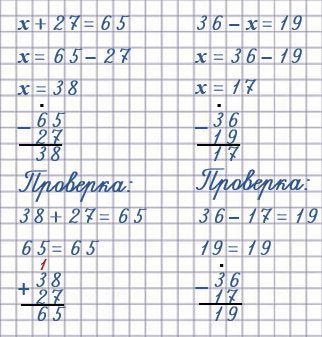 x + 27 = 65
x = 65 - 27
x = 38
- 65
27
38
Проверка:
38 + 27 = 65
65 = 65
1
+ 38
27
65
36 - x = 19
x = 36 - 19
x = 17
- 36
19
17
Проверка:
36 - 17 = 19
19 = 19
- 36
17
19